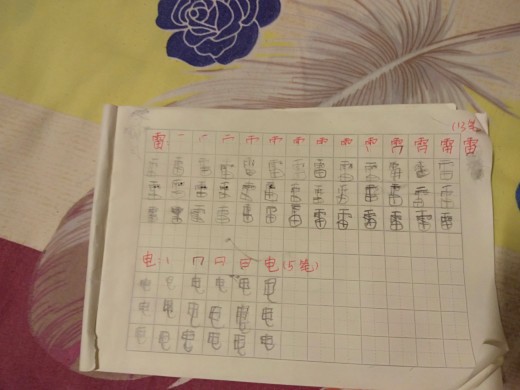 (13笔
雷: 雷
雷 雷 雷 雷 雷 雷 雷 雷 雷 雷 雷 雷 雷
雷 雷 雷 雷 雷 雷 雷 雷 雷 雷 雷 雷 雷
雷 雷 雷 雷 雷 雷 雷 雷 雷 雷 雷 雷 雷
电: 丨 冂 日 电 (5笔)
电 电 电 电 电 电
电 电 电 电 电 电
电 电 电 电 电 电